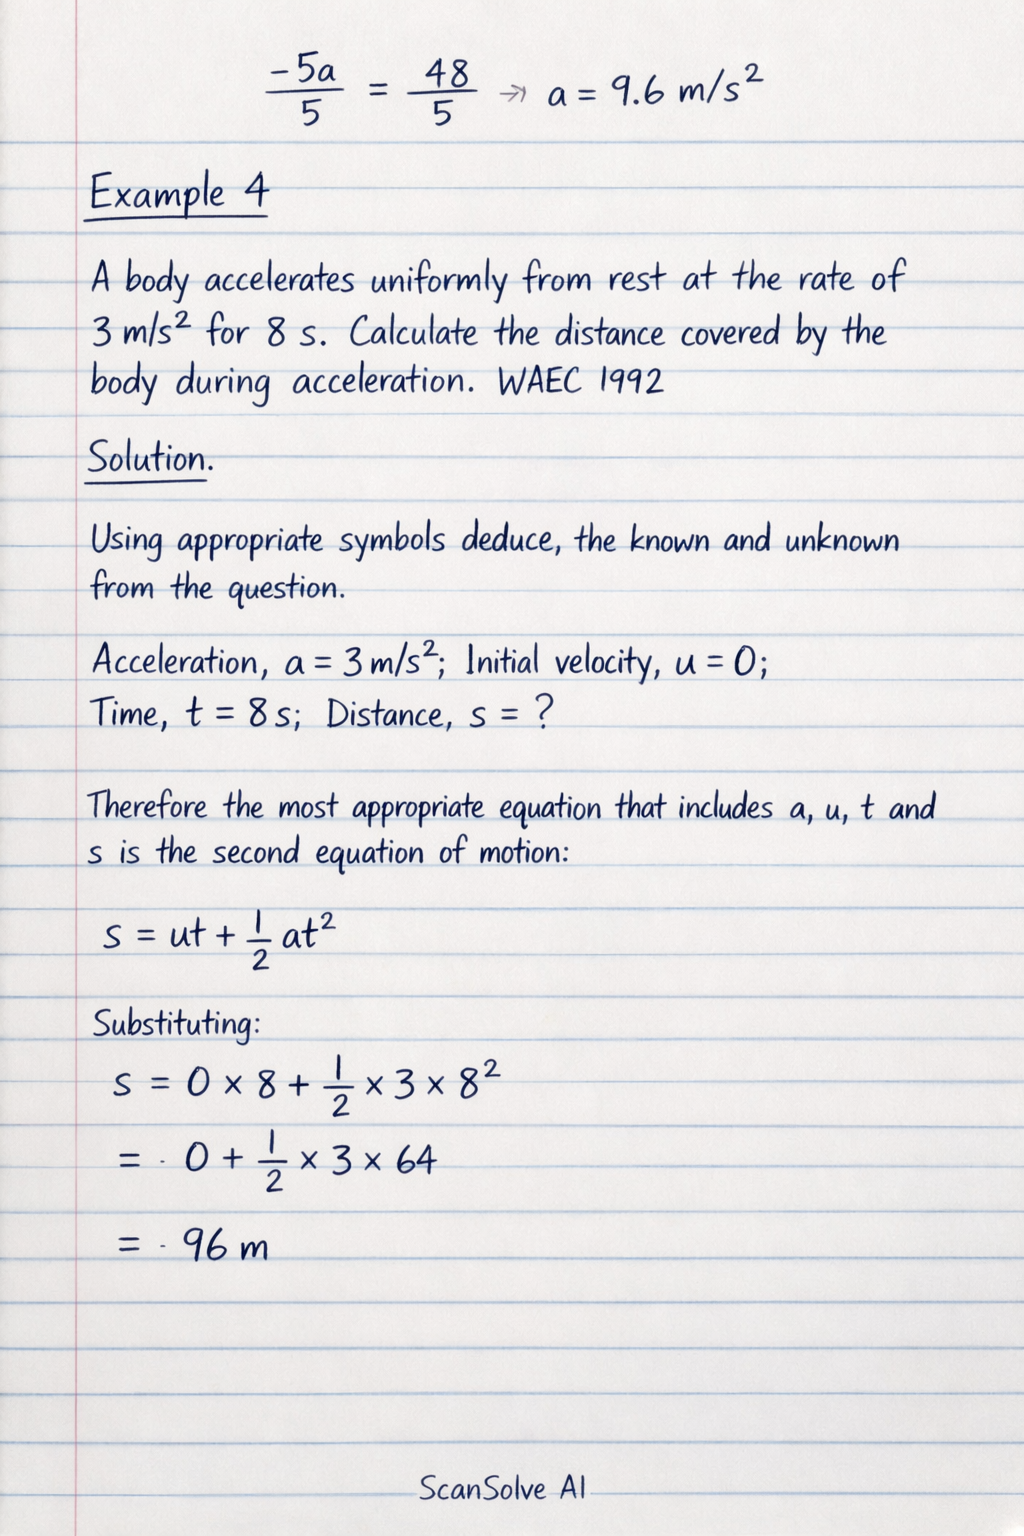 -5a/5 = 48/5 → a = 9.6 m/s²
Example 4
A body accelerates uniformly from rest at the rate of
3 m/s² for 8 s. Calculate the distance covered by the
body during acceleration. WAEC 1992
Solution.
Using appropriate symbols deduce, the known and unknown
from the question.
Acceleration, a = 3 m/s²; Initial velocity, u = 0;
Time, t = 8 s; Distance, s = ?
Therefore the most appropriate equation that includes a, u, t and
s is the second equation of motion:
s = ut + 1/2 at²
Substituting:
s = 0 × 8 + 1/2 × 3 × 8²
= · 0 + 1/2 × 3 × 64
= · 96 m
ScanSolve AI